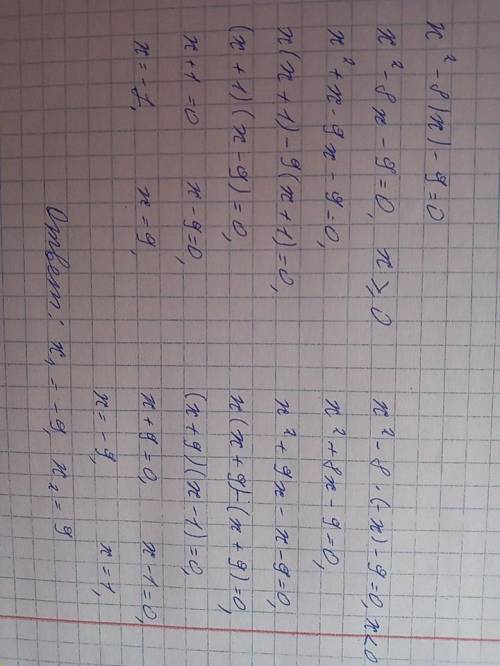 x² - 8|x| - 9 = 0
x² - 8x - 9 = 0, x ⩾ 0
x² + x - 9x - 9 = 0,
x(x + 1) - 9(x + 1) = 0,
(x + 1)(x - 9) = 0,
x + 1 = 0 x - 9 = 0,
x = -1, x = 9,
x² - 8 · (-x) - 9 = 0, x < 0
x² + 8x - 9 = 0,
x² + 9x - x - 9 = 0,
x(x + 9) - (x + 9) = 0,
(x + 9)(x - 1) = 0,
x + 9 = 0, x - 1 = 0,
x = -9, x = 1,
Ответ: x₁ = -9, x₂ = 9